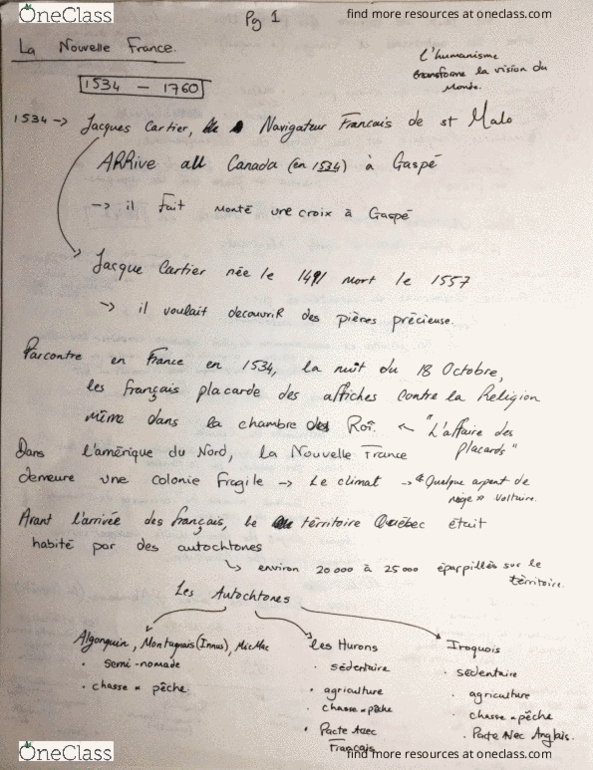 OneClass
find more resources at oneclass.com
Pg 1
La Nouvelle France.
L'humanisme
transforme la vision du
monde.
1534 - 1760
1534 -> Jacques Cartier, Navigateur Francais de st Malo
ARRive au Canada (en 1534) à Gaspé
-> il fait monté une croix à Gaspé
Jacque Cartier née le 1491 mort le 1557
-> il voulait decouvriR des pières précieuse.
Parcontre en France en 1534, la nuit du 18 Octobre,
les français placarde des affiches contre la Religion
même dans la chambre des Roi. <- "L'affaire des
placards"
Dans l'amérique du Nord, la Nouvelle France
demeure une colonie fragile -> Le climat -> "Quelque arpent de
nège" Voltaire.
Avant l'arrivée des français, le térritoire Québec était
habité par des autochtones
-> environ 20 000 à 25 000 éparpillés sur le
térritoire.
Les Autochtones
Algonquin, Montagnais (Innus), MicMac
• semi-nomade
• chasse - pêche.
Les Hurons
• sédentaire
• agriculture
• chasse - pêche
• Pacte Avec
Français
Iroquois
• sédentaire
• agriculture
• chasse - pêche
• Pacte Avec Anglais.
OneClass
find more resources at oneclass.com